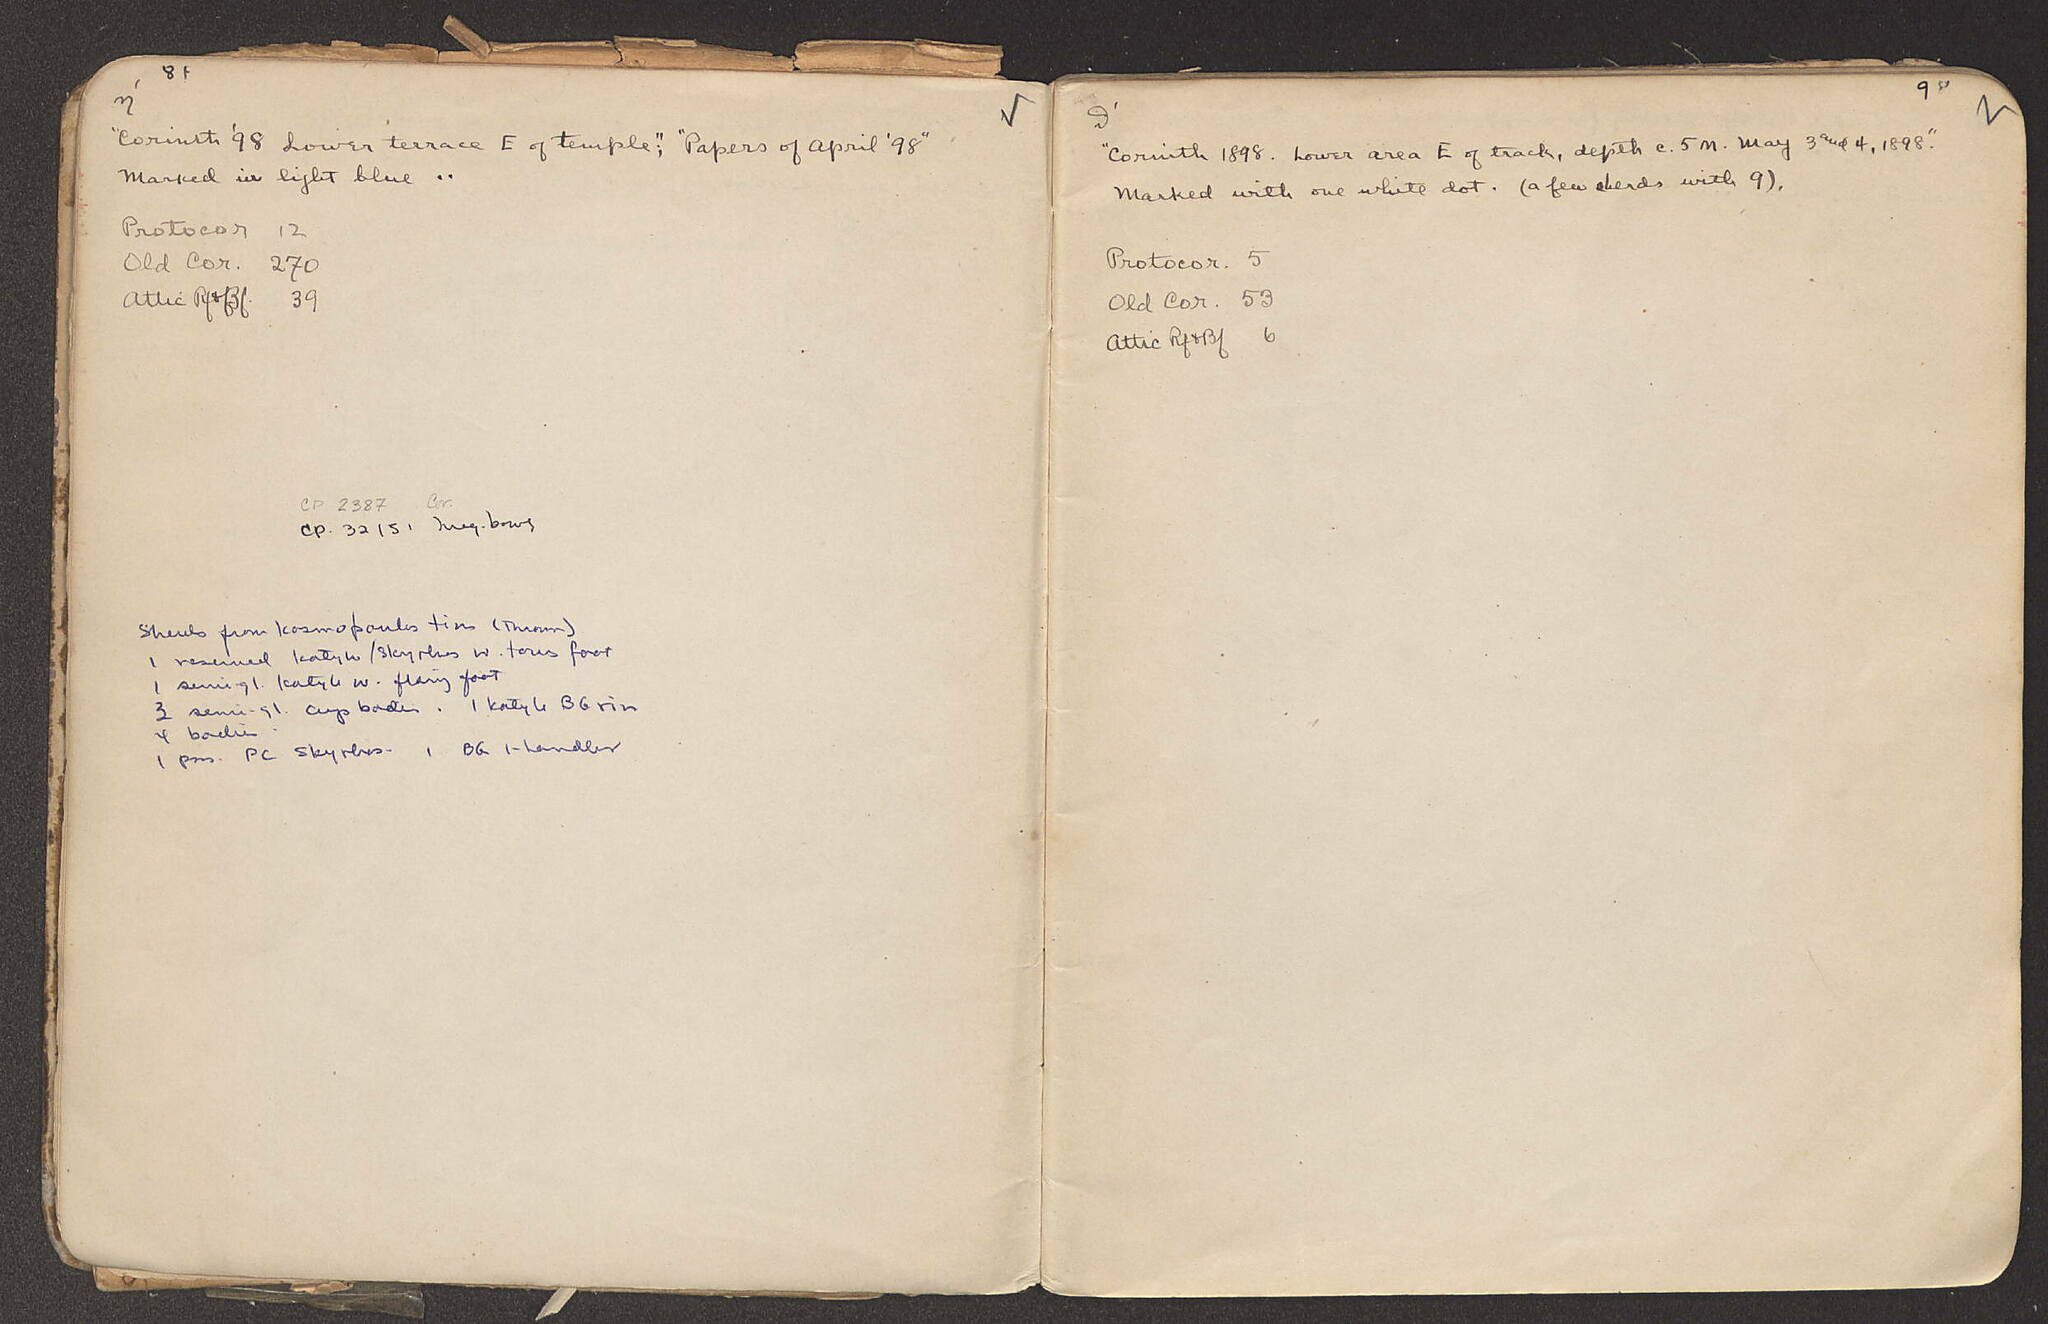 81
η'
"Corinth '98 Lower terrace E of temple"; "Papers of April '98"
Marked in light blue ..
Protocor 12
Old Cor. 270
Attic Rf & Bf. 39
CP 2387 Cor.
CP. 3215 , Meg. bowl
Sherds from Kosmopoulos tins (thrown)
1 reserved kotyle/skyphos w. torus foot
1 semi-gl. kotyle w. flaring foot
semi-gl. cup bodies . 1 kotyle BG rim
4 bodies
1 pos. PC skyphos 1 BG 1-handler
9
"Corinth 1898. Lower area E of track, depth c. 5 M. May 3 and 4, 1898."
Marked with one white dot. (a few sherds with 9).
Protocor. 5
Old Cor. 53
Attic Rf & Bf 6